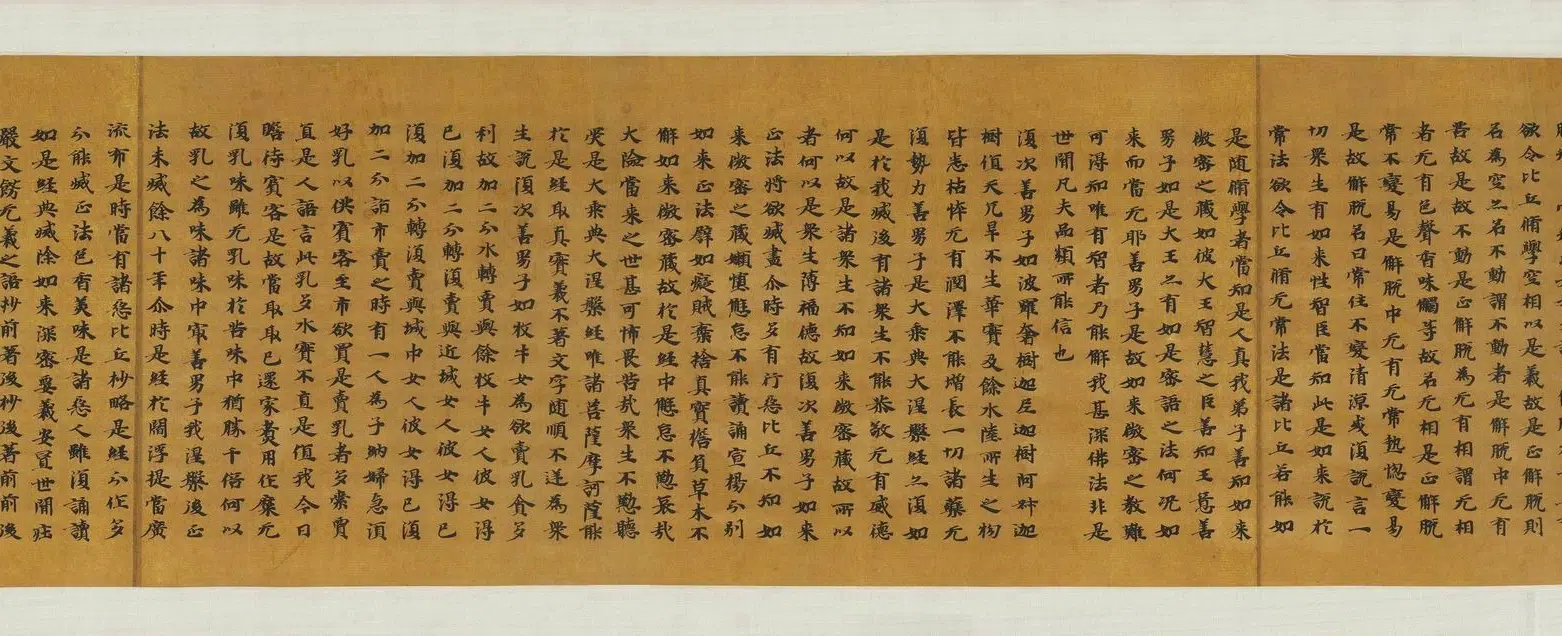 欲令比丘脩學空相以是義故是正解脫則
名為空亦名不動謂不動者是解脫中无有
苦故是故不動是正解脫為无有相謂无相
者无有色聲香味觸等故名无相是正解脫
常不變易是解脫中无有无常熱惱變易
是故解脫名曰常住不變清涼或復說言一
切眾生有如來性智臣當知此是如來說於
常法欲令比丘脩无常法是諸比丘若能如
是隨脩學者當知是人真我弟子善知如來
微密之藏如彼大王智慧之臣善知王意善
男子如是大王亦有如是密語之法何況如
來而當无耶善男子是故如來微密之教難
可得知唯有智者乃能解我甚深佛法非是
世間凡夫品類所能信也
復次善男子如波羅奢樹迦尼迦樹阿叔迦
樹值天亢旱不生華實及餘水陸所生之物
皆悉枯悴无有潤澤不能增長一切諸藥无
復勢力善男子是大乘典大涅槃經亦復如
是於我滅後有諸眾生不能恭敬无有威德
何以故是諸眾生不知如來微密藏故所以
者何以是眾生薄福德故復次善男子如來
正法將欲滅盡尒時多有行惡比丘不知如
來微密之藏嬾惰懈怠不能讀誦宣揚分別
如來正法譬如癡賊棄捨真寶擔負草木不
解如來微密藏故於是經中懈怠不懃哀哉
大險當來之世甚可怖畏苦哉眾生不懃聽
受是大乘典大涅槃經唯諸菩薩摩訶薩能
於是經取真實義不著文字隨順不逆為眾
生說復次善男子如牧牛女為欲賣乳貪多
利故加二分水轉賣與餘牧牛女人彼女得
已復加二分轉復賣與近城女人彼女得已
復加二分轉復賣與城中女人彼女得已復
加二分詣市賣之時有一人為子納婦急須
好乳以供賓客至市欲買是賣乳者多索價
直是人語言此乳多水實不直是值我今日
瞻待賓客是故當取取已還家煑用作糜无
復乳味雖无乳味於苦味中猶勝千倍何以
故乳之為味諸味中最善男子我涅槃後正
法未滅餘八十年尒時是經於閻浮提當廣
流布是時當有諸惡比丘抄略是經分作多
分能滅正法色香美味是諸惡人雖復誦讀
如是經典滅除如來深密要義安置世間莊
嚴文飾无義之語抄前著後抄後著前前後